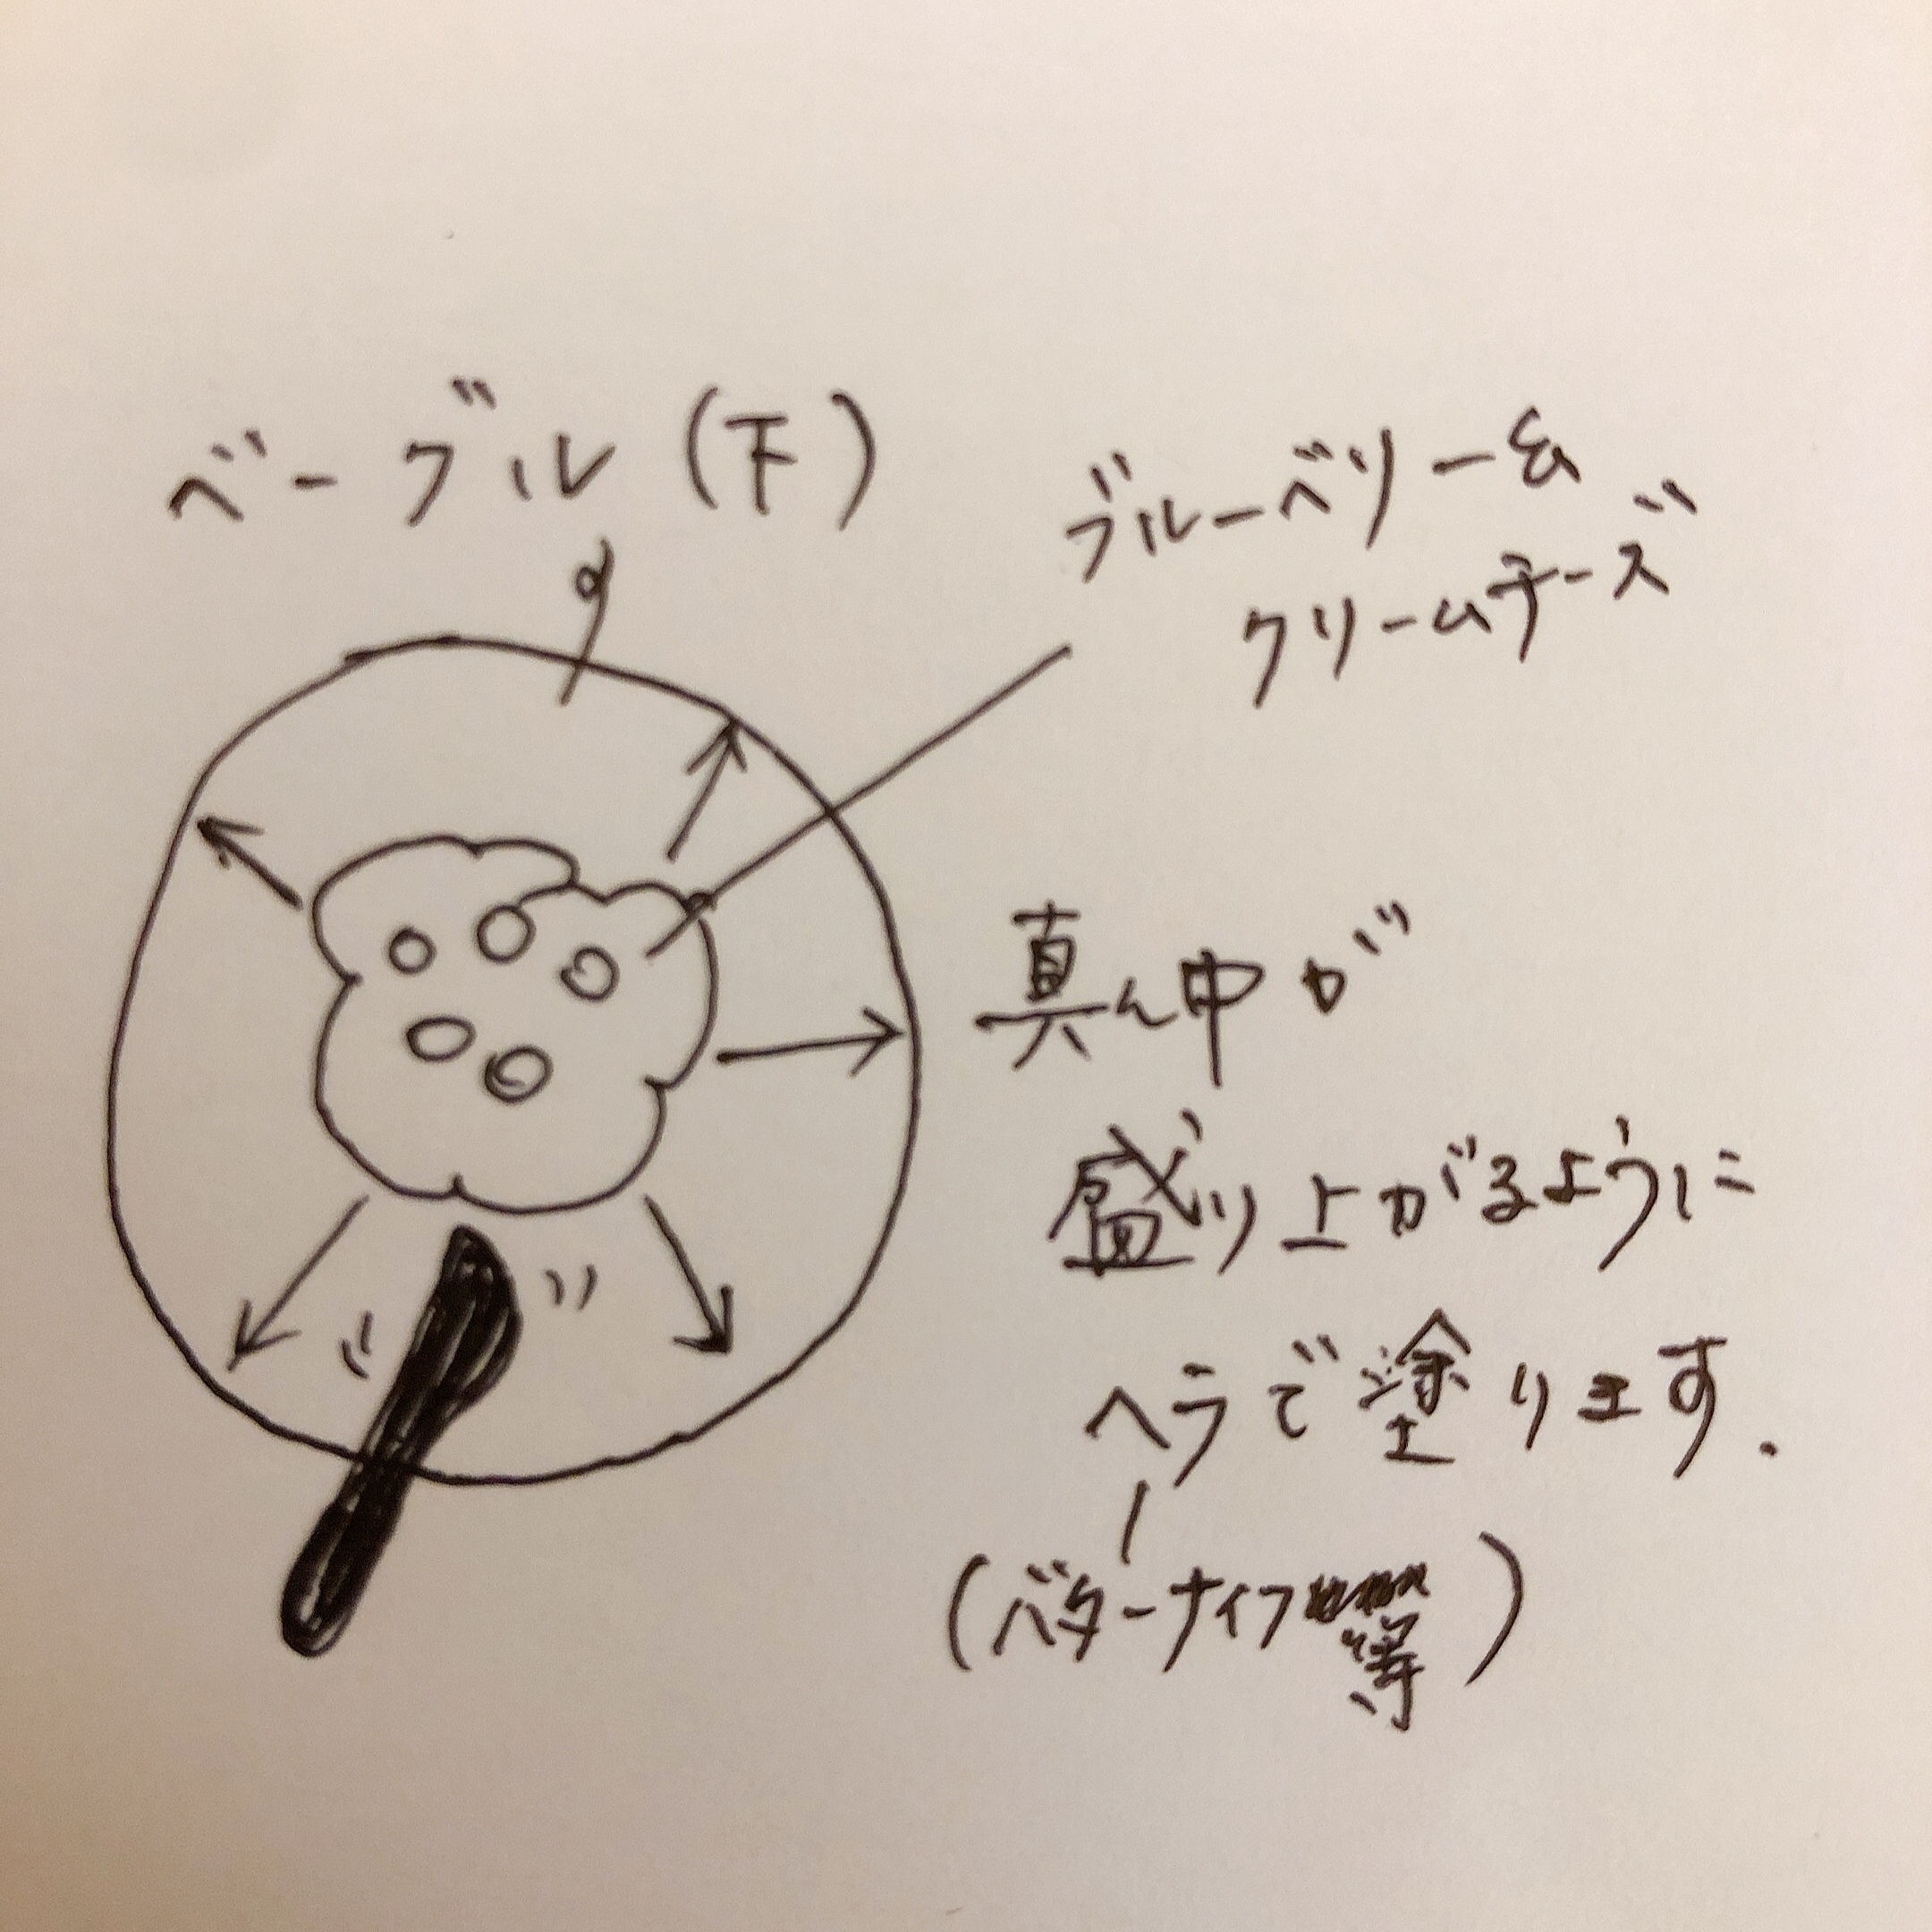 ベーグル(下)
ブルーベリー&
クリームチーズ
真ん中が
盛り上がるように
ヘラで塗ります.
(バターナイフ等)